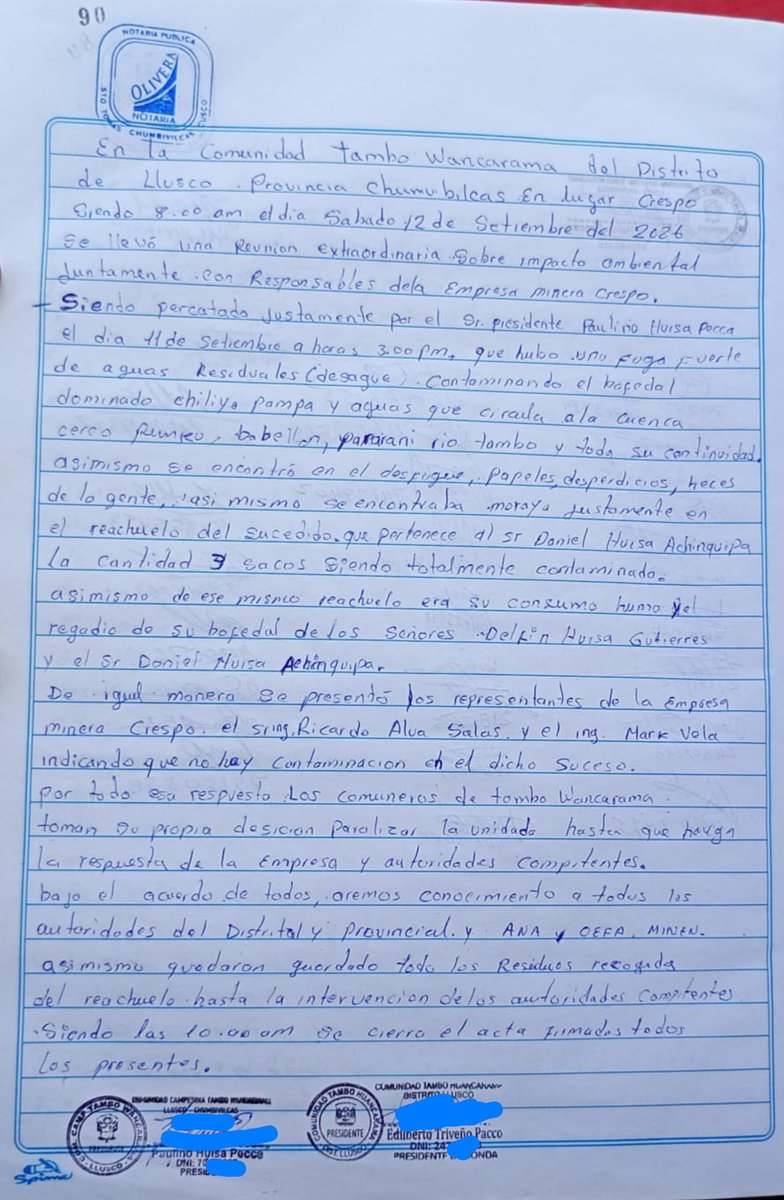 90
NOTARIA PUBLICA
OLIVERA
NOTARIA
STO TOMAS CHUMBIVILCAS CUSCO
En la Comunidad tambo Wancarama del Distrito
de Llusco. Provincia Chumvibilcas En lugar Crespo
Siendo 8.00 am el dia Sabado 12 de Setiembre del 2026
se llevó una Reunion extraordinaria Sobre impacto ambiental
Juntamente con Responsables dela Empresa minera Crespo.
- Siendo percatado Justamente por el Sr. presidente Paulino Huisa Pocca
el dia 11 de Setiembre a horas 3.00 pm, que hubo una fuga fuerte
de aguas Residuales (desague). Contaminando el bofedal
dominado chiliyo pampa y aguas que circula ala cuenca
cerco , babellon, pararani rio tambo y toda su continuidad.
asimismo se encontró en el desfogue, papeles, desperdicios, heces
de la gente, asi mismo se encontraba moraya Justamente en
el reachuelo del sucedido. que pertenece al sr Daniel Huisa Achinquipa
La cantidad 3 sacos siendo totalmente contaminado.
asimismo de ese mismo reachuelo era su consumo humo y el
regadio de su bofedal de los Señores Delfin Huisa Gutierres
y el Sr Daniel Huisa Achinquipa.
De igual manera se presentó los representantes de la Empresa
minera Crespo. el sr ing. Ricardo Alva Salas, y el ing. Mark Vela
indicando que no hay contaminacion en el dicho Suceso.
por todo esa respuesta Los comuneros de tambo Wancarama.
toman su propia desicion Paralizar la unidad hasta que hayga
la respuesta de la Empresa y autoridades compitentes.
bajo el acuerdo de todos, aremos conocimiento a todos los
autoridades del Distrital y Provincial. y ANA y OEFA, MINEN.
asimismo quedaron guardado todo los Residuos recogidos
del reachuelo hasta la intervencion de los autoridades compitentes
Siendo las 10.00 am se cierra el acta firmados todos
los presentes.
COMUNIDAD CAMPESINA TAMBO WANCARAMA
LLUSCO - CHUMBIVILCAS
Paulino Huisa Pocca
DNI: 70
PRESI
COM. CAMP. TAMBO
PRESIDENTE
LLUSCO
COMUNIDAD TAMBO HUANCARAMA
DISTRITO LLUSCO
Edilberto Triveño Pacco
DNI: 24
PRESIDENTE RONDA
COMUNIDAD TAMBO HUANCARAMA
PRESIDENTE
DIST. LLUSCO
Spime